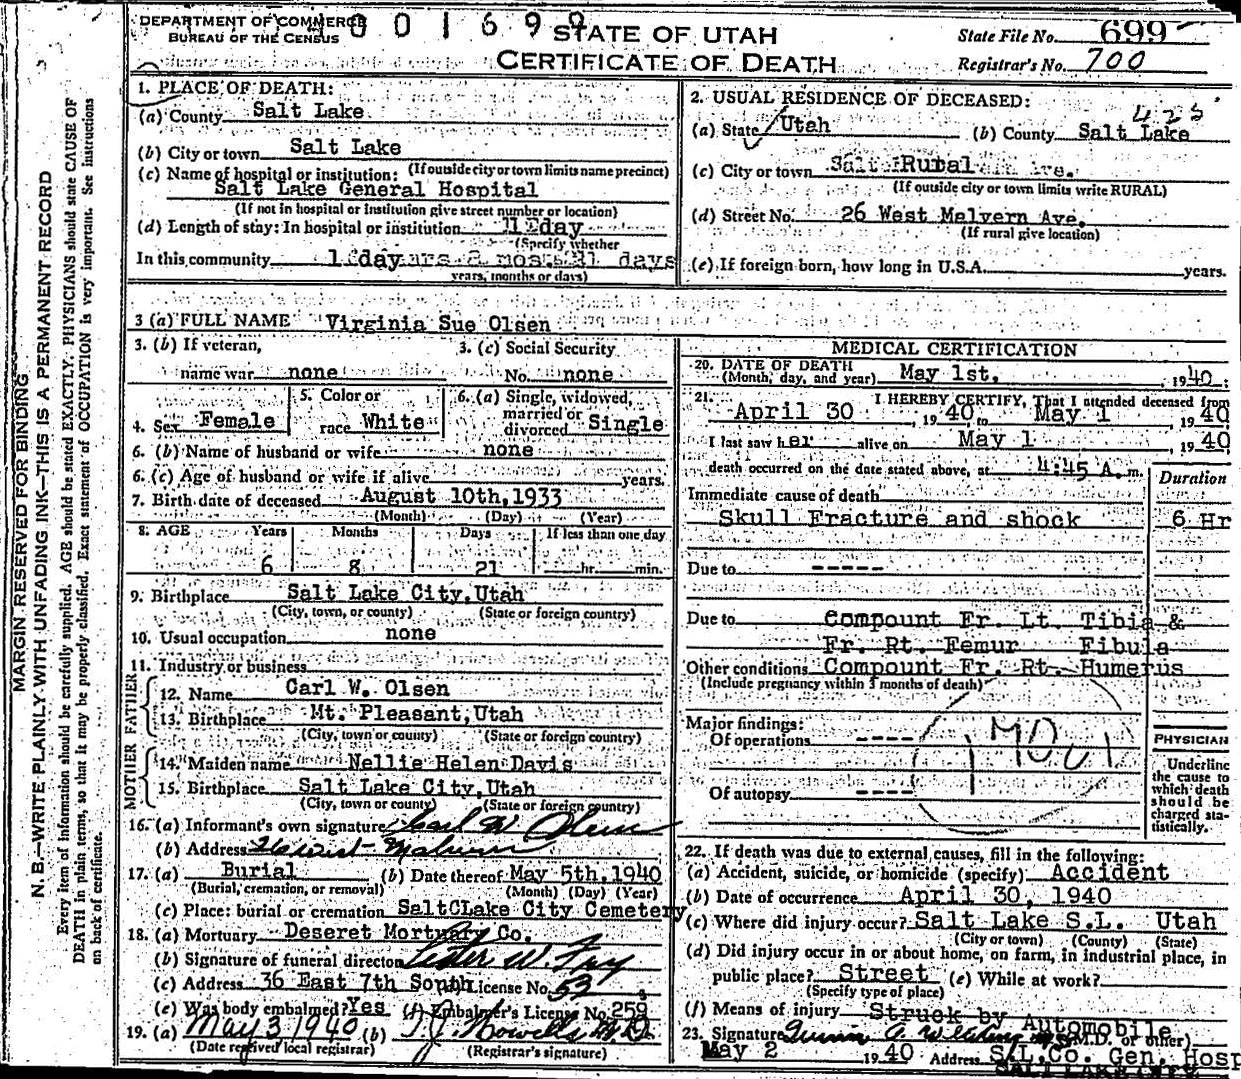 DEPARTMENT OF COMMERCE
BUREAU OF THE CENSUS
001699
STATE OF UTAH
CERTIFICATE OF DEATH
State File No. 699
Registrar's No. 700
MARGIN RESERVED FOR BINDING
N. B.—WRITE PLAINLY WITH UNFADING INK—THIS IS A PERMANENT RECORD
Every item of information should be carefully supplied. AGE should be stated EXACTLY. PHYSICIANS should state CAUSE OF
DEATH in plain terms, so that it may be properly classified. Exact statement of OCCUPATION is very important. See instructions
on back of certificate.
1. PLACE OF DEATH:
(a) County Salt Lake
(b) City or town Salt Lake
(c) Name of hospital or institution: (If outside city or town limits name precinct)
Salt Lake General Hospital
(If not in hospital or institution give street number or location)
(d) Length of stay: In hospital or institution day
(Specify whether
In this community 1 day days
years, months or days)
2. USUAL RESIDENCE OF DECEASED:
425
(a) State Utah (b) County Salt Lake
(c) City or town Rural Ave.
(If outside city or town limits write RURAL)
(d) Street No. 26 West Malvern Ave.
(If rural give location)
(e) If foreign born, how long in U.S.A. years.
3 (a) FULL NAME Virginia Sue Olsen
3. (b) If veteran,
name war none
3. (c) Social Security
No. none
4. Sex Female
5. Color or
race White
6. (a) Single, widowed,
married or
divorced Single
6. (b) Name of husband or wife none
6. (c) Age of husband or wife if alive years.
7. Birth date of deceased August 10th, 1933
(Month) (Day) (Year)
8. AGE Years Months Days If less than one day
6 8 21 hr. min.
9. Birthplace Salt Lake City, Utah
(City, town, or county) (State or foreign country)
10. Usual occupation none
11. Industry or business
FATHER
12. Name Carl W. Olsen
13. Birthplace Mt. Pleasant, Utah
(City, town or county) (State or foreign country)
MOTHER
14. Maiden name Nellie Helen Davis
15. Birthplace Salt Lake City, Utah
(City, town or county) (State or foreign country)
16. (a) Informant's own signature Carl W Olsen
(b) Address 26 West Malvern
17. (a) Burial (b) Date thereof May 5th, 1940
(Burial, cremation, or removal) (Month) (Day) (Year)
(c) Place: burial or cremation Salt Lake City Cemetery
18. (a) Mortuary Deseret Mortuary Co.
(b) Signature of funeral director Lester W. Fry
(c) Address 36 East 7th South License No. 53
(e) Was body embalmed? Yes (f) Embalmer's License No. 259
19. (a) May 3 1940 (b) T. J. Howells M.D.
(Date received local registrar) (Registrar's signature)
MEDICAL CERTIFICATION
20. DATE OF DEATH
(Month, day, and year) May 1st, 1940
21. I HEREBY CERTIFY, That I attended deceased from
April 30, 1940, to May 1, 1940
I last saw her alive on May 1, 1940
death occurred on the date stated above, at 4:45 A.m.
Duration
Immediate cause of death
Skull Fracture and shock 6 Hr
Due to -----
Due to Compount Fr. Lt. Tibia &
Fr. Rt. Femur Fibula
Other conditions Compount Fr. Rt. Humerus
(Include pregnancy within 3 months of death)
Major findings:
Of operations ----
Of autopsy ----
PHYSICIAN
Underline
the cause to
which death
should be
charged sta-
tistically.
22. If death was due to external causes, fill in the following:
(a) Accident, suicide, or homicide (specify) Accident
(b) Date of occurrence April 30, 1940
(c) Where did injury occur? Salt Lake S.L. Utah
(City or town) (County) (State)
(d) Did injury occur in or about home, on farm, in industrial place, in
public place? Street (e) While at work?
(Specify type of place)
(f) Means of injury Struck by
Automobile
23. Signature (M.D. or other)
May 2 1940 Address S/L.Co. Gen. Hosp
SALT LAKE CITY